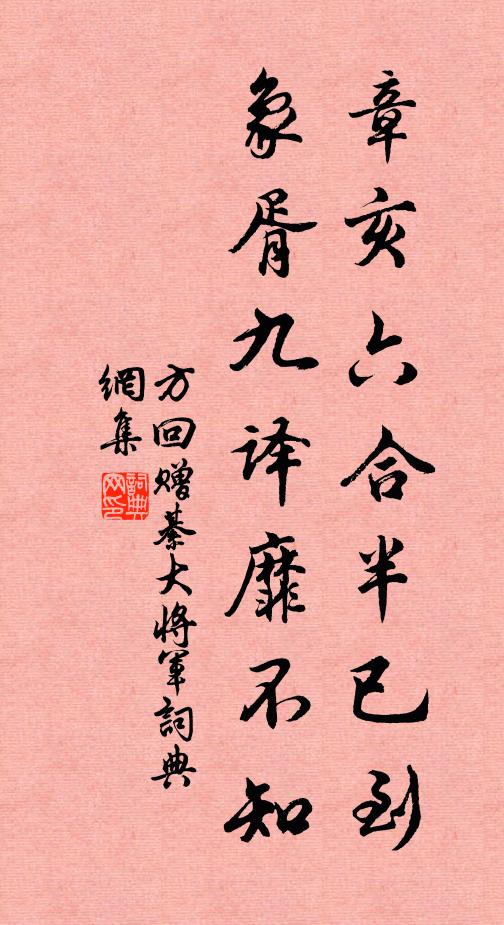 章亥六合半已到
象胥九译靡不知
方回赠綦大将军詞典
網集
詞典网印